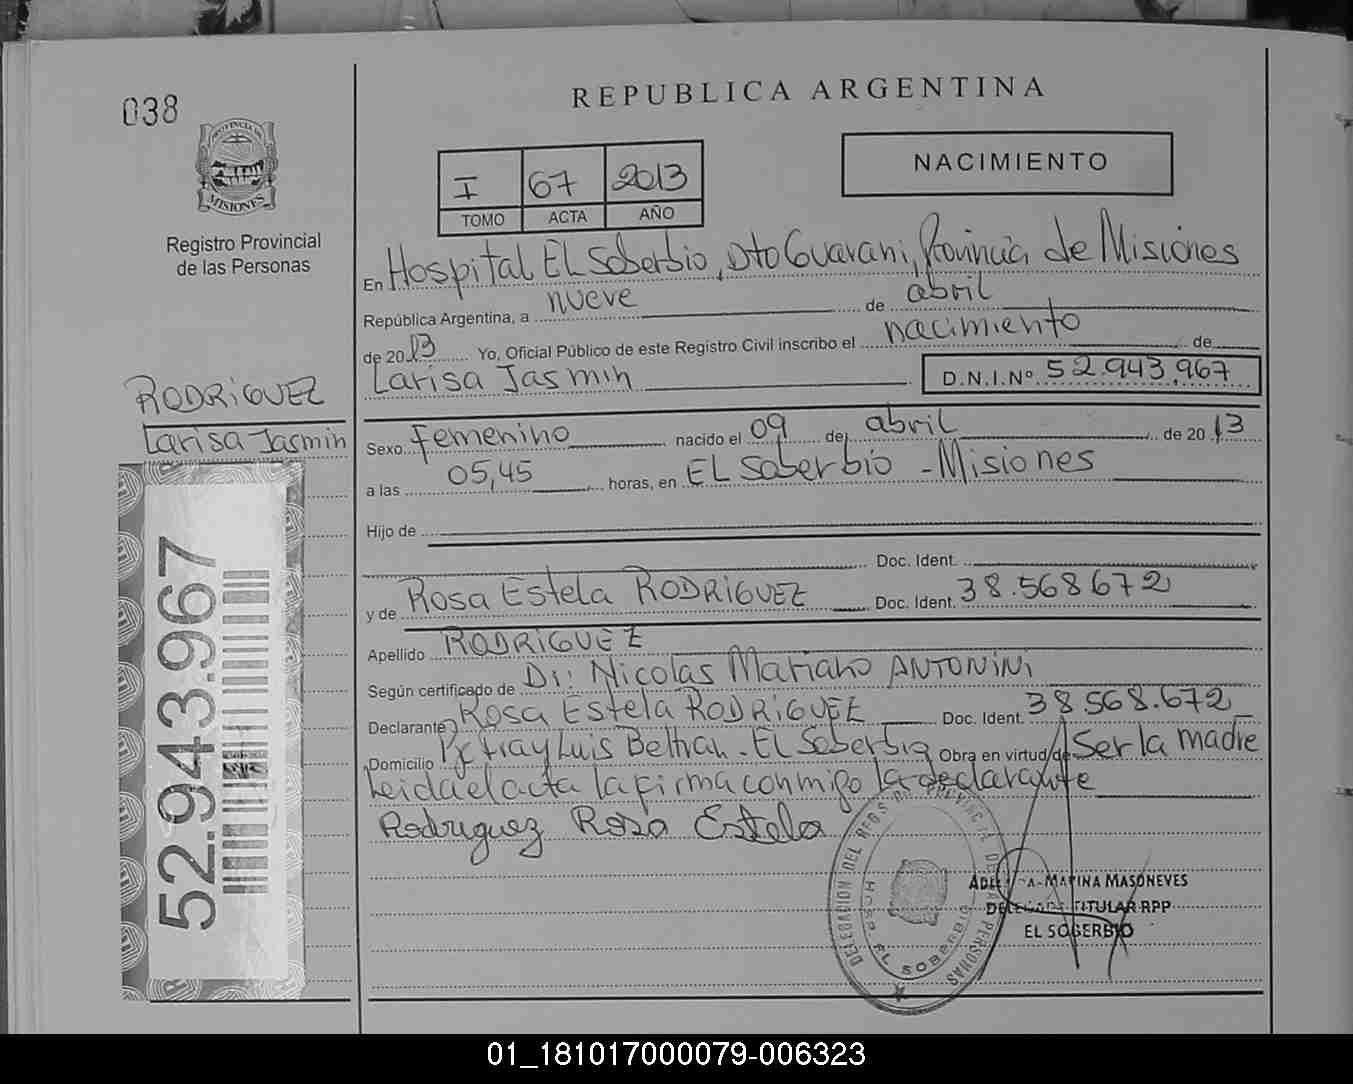 038
PROVINCIA DE
MISIONES
Registro Provincial
de las Personas
REPUBLICA ARGENTINA
I 67 2013
TOMO ACTA AÑO
NACIMIENTO
En Hospital El Soberbio, Dto Guarani, Provincia de Misiones
República Argentina, a nueve de abril
de 2013 Yo, Oficial Público de este Registro Civil inscribo el nacimiento de
Larisa Jasmin D.N.I.Nº 52.943,967
RODRIGUEZ
Larisa Jasmin
Sexo Femenino nacido el 09 de abril de 2013
a las 05,45 horas, en EL Soberbio - Misiones
Hijo de
Doc. Ident.
y de Rosa Estela RODRIGUEZ Doc. Ident. 38.568672
Apellido RODRIGUEZ
Según certificado de Dr: Nicolas Mariano ANTONINI
Declarante Rosa Estela RODRIGUEZ Doc. Ident. 38568.672
Domicilio Fray Luis Beltran - El Soberbio Obra en virtud de Ser la madre
Leida el acta la firma conmigo la declarante
Rodriguez Rosa Estela
52.943.967
DELEGACION DEL REG. PROVINCIAL DE LAS PERSONAS
HOSP. EL SOBERBIO
MARINA MASONEVES
DELEGADA TITULAR RPP
EL SOBERBIO
01_181017000079-006323